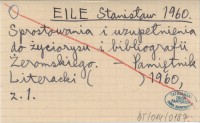 EILE Stanisław 1960.
Sprostowania i uzupełnienia
do życiorysu i bibliografii
Żeromskiego. – Pamiętnik
Literacki ( ) 1960,
z. 1.